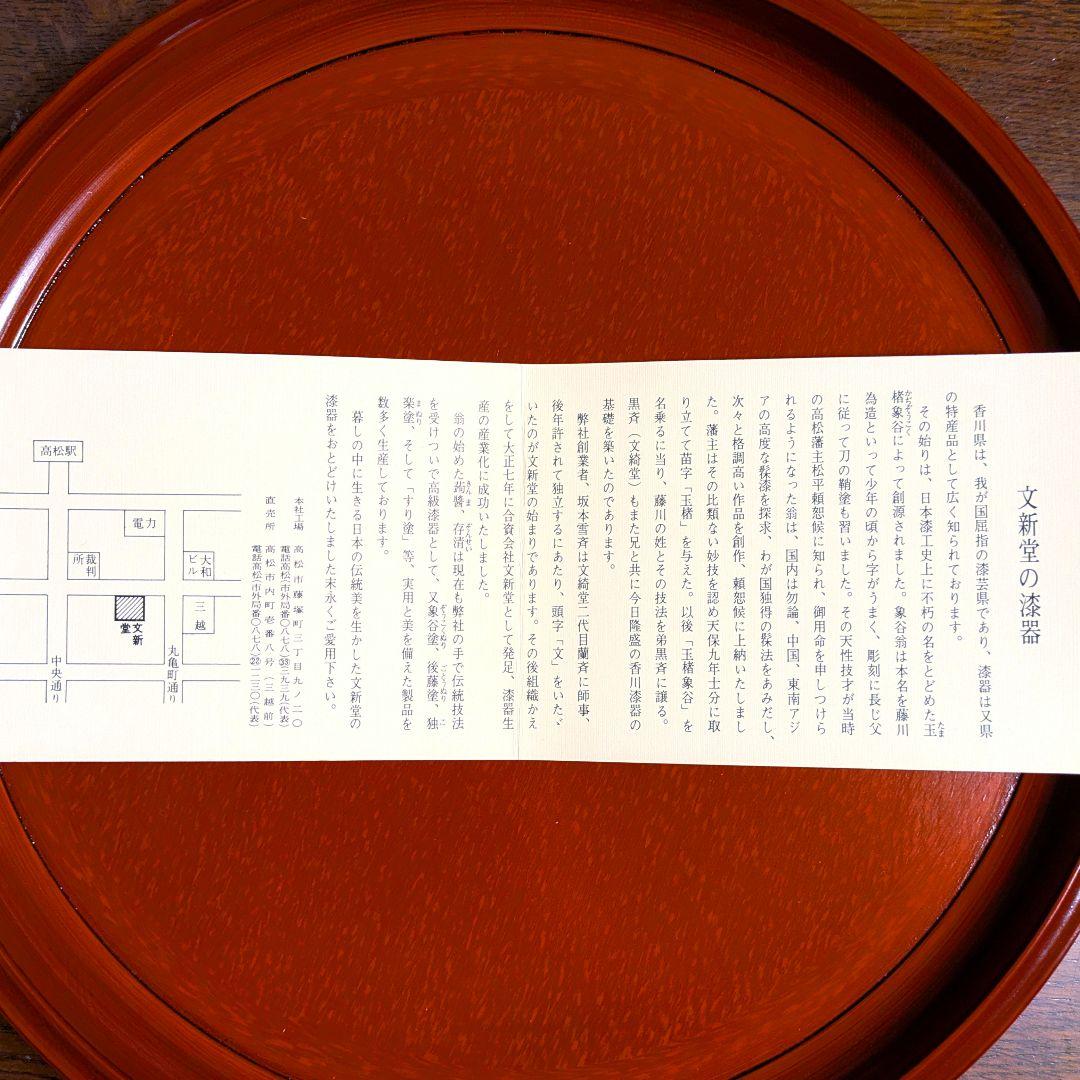 文新堂の漆器
香川県は、我が国屈指の漆芸県であり、漆器は又県
の特産品として広く知られております。
その始りは、日本漆工史上に不朽の名をとどめた玉
楮象谷によって創源されました。象谷翁は本名を藤川
為造といって少年の頃から字がうまく、彫刻に長じ父
に従って刀の鞘塗も習いました。その天性技才が当時
の高松藩主松平頼恕候に知られ、御用命を申しつけら
れるようになった翁は、国内は勿論、中国、東南アジ
アの高度な髹漆を探求、わが国独得の髹法をあみだし、
次々と格調高い作品を創作、頼恕候に上納いたしまし
た。藩主はその比類ない妙技を認め天保九年士分に取
り立てて苗字「玉楮」を与えた。以後「玉楮象谷」を
名乗るに当り、藤川の姓とその技法を弟黒斉に譲る。
黒斉（文綺堂）もまた兄と共に今日隆盛の香川漆器の
基礎を築いたのであります。
弊社創業者、坂本雪斉は文綺堂二代目蘭斉に師事、
後年許されて独立するにあたり、頭字「文」をいたゞ
いたのが文新堂の始まりであります。その後組織かえ
をして大正七年に合資会社文新堂として発足、漆器生
産の産業化に成功いたしました。
翁の始めた蒟醬、存清は現在も弊社の手で伝統技法
を受けついで高級漆器として、又象谷塗、後藤塗、独
楽塗、そして「すり塗」等、実用と美を備えた製品を
数多く生産しております。
暮しの中に生きる日本の伝統美を生かした文新堂の
漆器をおとどけいたしました末永くご愛用下さい。
たま
かぢぞうこく
きんま
ぞんせい
ぞうこくぬり
ごとうぬり
こ
まぬり
本社工場 高松市藤塚町三丁目九ノ二〇
電話高松(市外局番〇八七八)㉝二九三九(代表)
直売所 高松市内町壱番八号(三越前)
電話高松(市外局番〇八七八)㉒二三〇〇(代表)
高松駅
電力
裁判所
大和ビル
三越
文新堂
中央通り
丸亀町通り